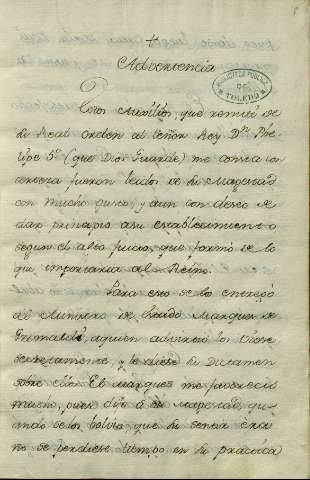 +
Advertencia
BIBLIOTECA PUBLICA
DE
TOLEDO
Estos Auxilios, que remito de
su Real orden al señor Rey Dn. Phe-
lipe 5º (que Dios Guarde) me consta con
certeza fueron leidos de su Magestad
con mucho gusto, y aun con deseo de
dar principio a su establecimiento
segun el alto juicio, que formó de lo
que importaria al Reino.
Para esto se los entregó
al Ministro de Estado Marques de
Grimaldi, a quien advirtió los viese
secretamente, y le diese su Dictamen
sobre ellos. El Marques me favoreció
mucho, pues dijo a su Magestad, qu-
ando se los bolvió, que su sentir era
no se perdiese tiempo en su practica